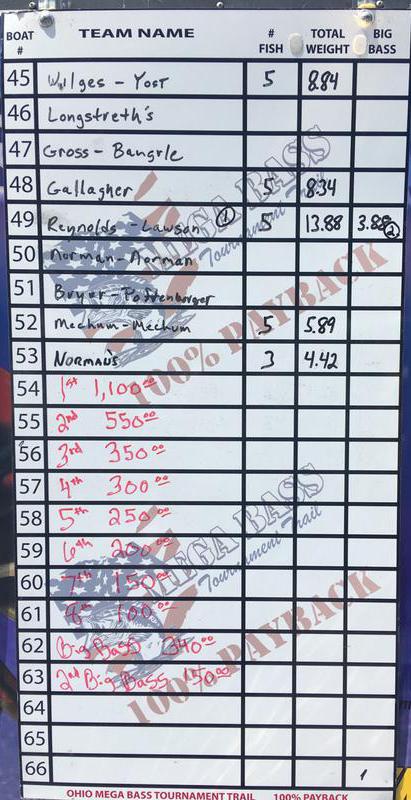 BOAT # TEAM NAME # FISH TOTAL WEIGHT BIG BASS
45 Wilges - Yost 5 8.84
46 Longstreth's
47 Gross - Bangrle
48 Gallagher 5 8.34
49 Reynolds - Lawson 1 5 13.88 3.88 2
50 Norman - Norman
51 Bryer - Poffenbarger
52 Mechum - Mechum 5 5.89
53 NORMAN'S 3 4.42
54 1st 1,100.00
55 2nd 550.00
56 3rd 350.00
57 4th 300.00
58 5th 250.00
59 6th 200.00
60 7th 150.00
61 8th 100.00
62 Big Bass 340.00
63 2nd Big Bass 150.00
64
65
66 1
MEGA BASS
Tournament Trail
100% PAYBACK
MEGA BASS
Tournament Trail
100% PAYBACK
OHIO MEGA BASS TOURNAMENT TRAIL 100% PAYBACK